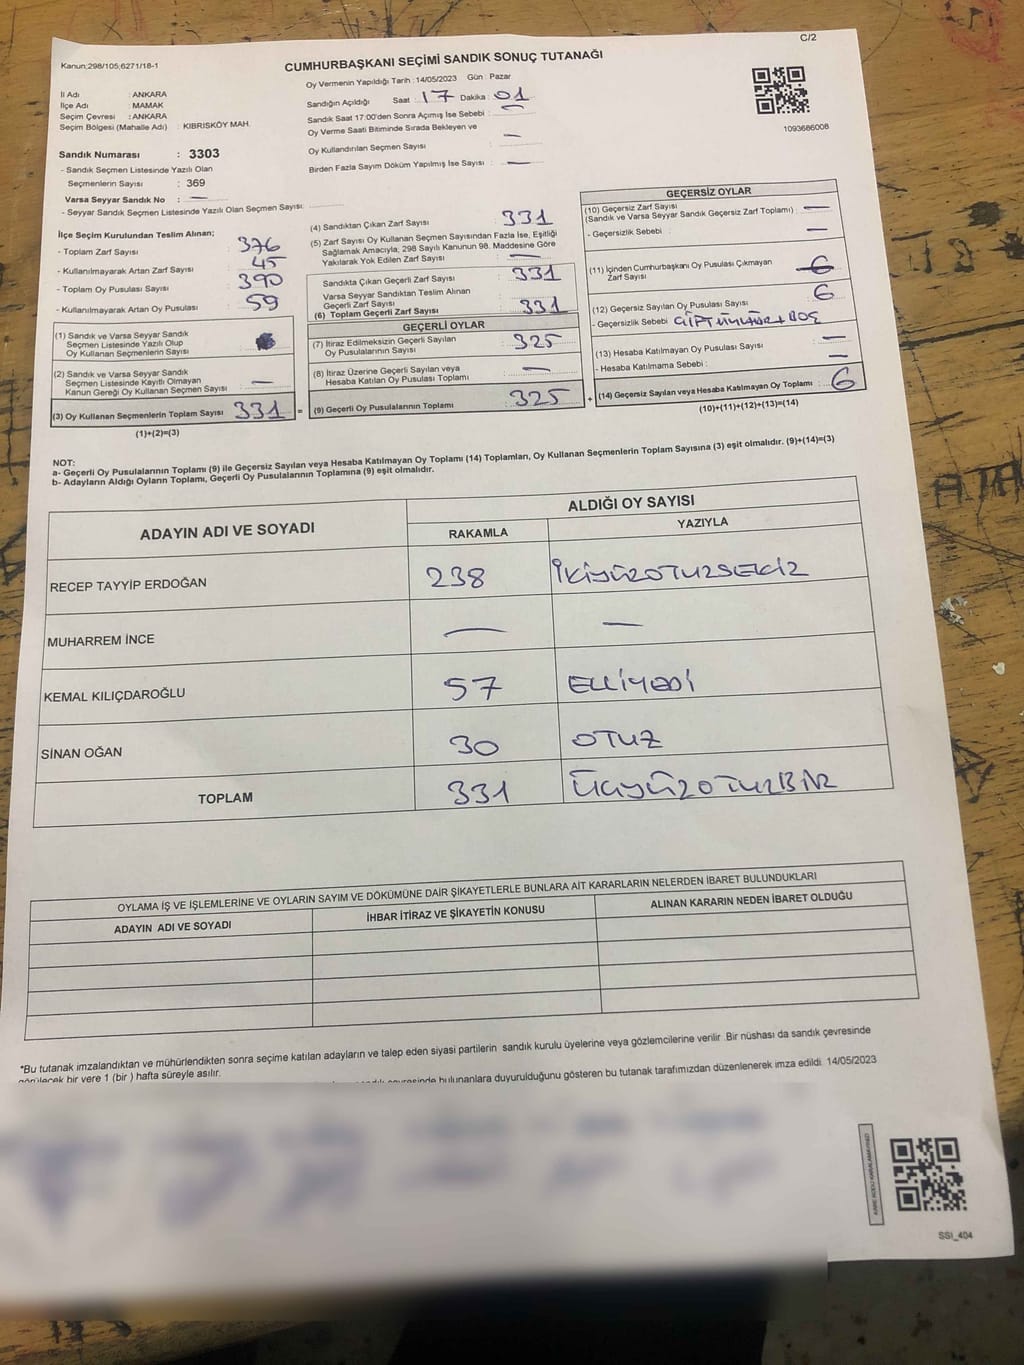 C/2
Kanun;298/105;6271/18-1
CUMHURBAŞKANI SEÇİMİ SANDIK SONUÇ TUTANAĞI
Oy Vermenin Yapıldığı Tarih : 14/05/2023 Gün : Pazar
İl Adı : ANKARA
İlçe Adı : MAMAK
Seçim Çevresi : ANKARA
Seçim Bölgesi (Mahalle Adı) : KIBRISKÖY MAH.
Sandığın Açıldığı Saat : 17 Dakika : 01
Sandık Saat 17:00'den Sonra Açmış İse Sebebi : —
Oy Verme Saati Bitiminde Sırada Bekleyen ve
Oy Kullandırılan Seçmen Sayısı : —
Birden Fazla Sayım Döküm Yapılmış İse Sayısı : —
1093686008
Sandık Numarası : 3303
- Sandık Seçmen Listesinde Yazılı Olan
Seçmenlerin Sayısı : 369
Varsa Seyyar Sandık No : —
- Seyyar Sandık Seçmen Listesinde Yazılı Olan Seçmen Sayısı:
İlçe Seçim Kurulundan Teslim Alınan;
- Toplam Zarf Sayısı : 376
- Kullanılmayarak Artan Zarf Sayısı : 45
- Toplam Oy Pusulası Sayısı : 390
- Kullanılmayarak Artan Oy Pusulası : 59
(1) Sandık ve Varsa Seyyar Sandık
Seçmen Listesinde Yazılı Olup
Oy Kullanan Seçmenlerin Sayısı :
(2) Sandık ve Varsa Seyyar Sandık
Seçmen Listesinde Kayıtlı Olmayan
Kanun Gereği Oy Kullanan Seçmen Sayısı : —
(3) Oy Kullanan Seçmenlerin Toplam Sayısı : 331 =
(1)+(2)=(3)
(4) Sandıktan Çıkan Zarf Sayısı : 331
(5) Zarf Sayısı Oy Kullanan Seçmen Sayısından Fazla İse, Eşitliği
Sağlamak Amacıyla, 298 Sayılı Kanunun 98. Maddesine Göre
Yakılarak Yok Edilen Zarf Sayısı : —
Sandıkta Çıkan Geçerli Zarf Sayısı : 331
Varsa Seyyar Sandıktan Teslim Alınan
Geçerli Zarf Sayısı :
(6) Toplam Geçerli Zarf Sayısı : 331
GEÇERLİ OYLAR
(7) İtiraz Edilmeksizin Geçerli Sayılan
Oy Pusulalarının Sayısı : 325
(8) İtiraz Üzerine Geçerli Sayılan veya
Hesaba Katılan Oy Pusulası Toplamı : —
(9) Geçerli Oy Pusulalarının Toplamı : 325 +
GEÇERSİZ OYLAR
(10) Geçersiz Zarf Sayısı
(Sandık ve Varsa Seyyar Sandık Geçersiz Zarf Toplamı) : —
- Geçersizlik Sebebi : —
(11) İçinden Cumhurbaşkanı Oy Pusulası Çıkmayan
Zarf Sayısı : 6
(12) Geçersiz Sayılan Oy Pusulası Sayısı : 6
- Geçersizlik Sebebi : ÇİFT MÜHÜR + BOŞ
(13) Hesaba Katılmayan Oy Pusulası Sayısı : —
- Hesaba Katılmama Sebebi : —
(14) Geçersiz Sayılan veya Hesaba Katılmayan Oy Toplamı : 6
(10)+(11)+(12)+(13)=(14)
NOT:
a- Geçerli Oy Pusulalarının Toplamı (9) ile Geçersiz Sayılan veya Hesaba Katılmayan Oy Toplamı (14) Toplamları, Oy Kullanan Seçmenlerin Toplam Sayısına (3) eşit olmalıdır. (9)+(14)=(3)
b- Adayların Aldığı Oyların Toplamı, Geçerli Oy Pusulalarının Toplamına (9) eşit olmalıdır.
ADAYIN ADI VE SOYADI ALDIĞI OY SAYISI
RAKAMLA YAZIYLA
RECEP TAYYİP ERDOĞAN 238 İKİYÜZOTUZSEKİZ
MUHARREM İNCE — —
KEMAL KILIÇDAROĞLU 57 ELLİYEDİ
SİNAN OĞAN 30 OTUZ
TOPLAM 331 ÜÇYÜZOTUZBİR
OYLAMA İŞ VE İŞLEMLERİNE VE OYLARIN SAYIM VE DÖKÜMÜNE DAİR ŞİKAYETLERLE BUNLARA AİT KARARLARIN NELERDEN İBARET BULUNDUKLARI
ADAYIN ADI VE SOYADI İHBAR İTİRAZ VE ŞİKAYETİN KONUSU ALINAN KARARIN NEDEN İBARET OLDUĞU
*Bu tutanak imzalandıktan ve mühürlendikten sonra seçime katılan adayların ve talep eden siyasi partilerin sandık kurulu üyelerine veya gözlemcilerine verilir. Bir nüshası da sandık çevresinde
görülecek bir yere 1 (bir ) hafta süreyle asılır.
çevresinde bulunanlara duyurulduğunu gösteren bu tutanak tarafımızdan düzenlenerek imza edildi. 14/05/2023
SSI_404
ATA